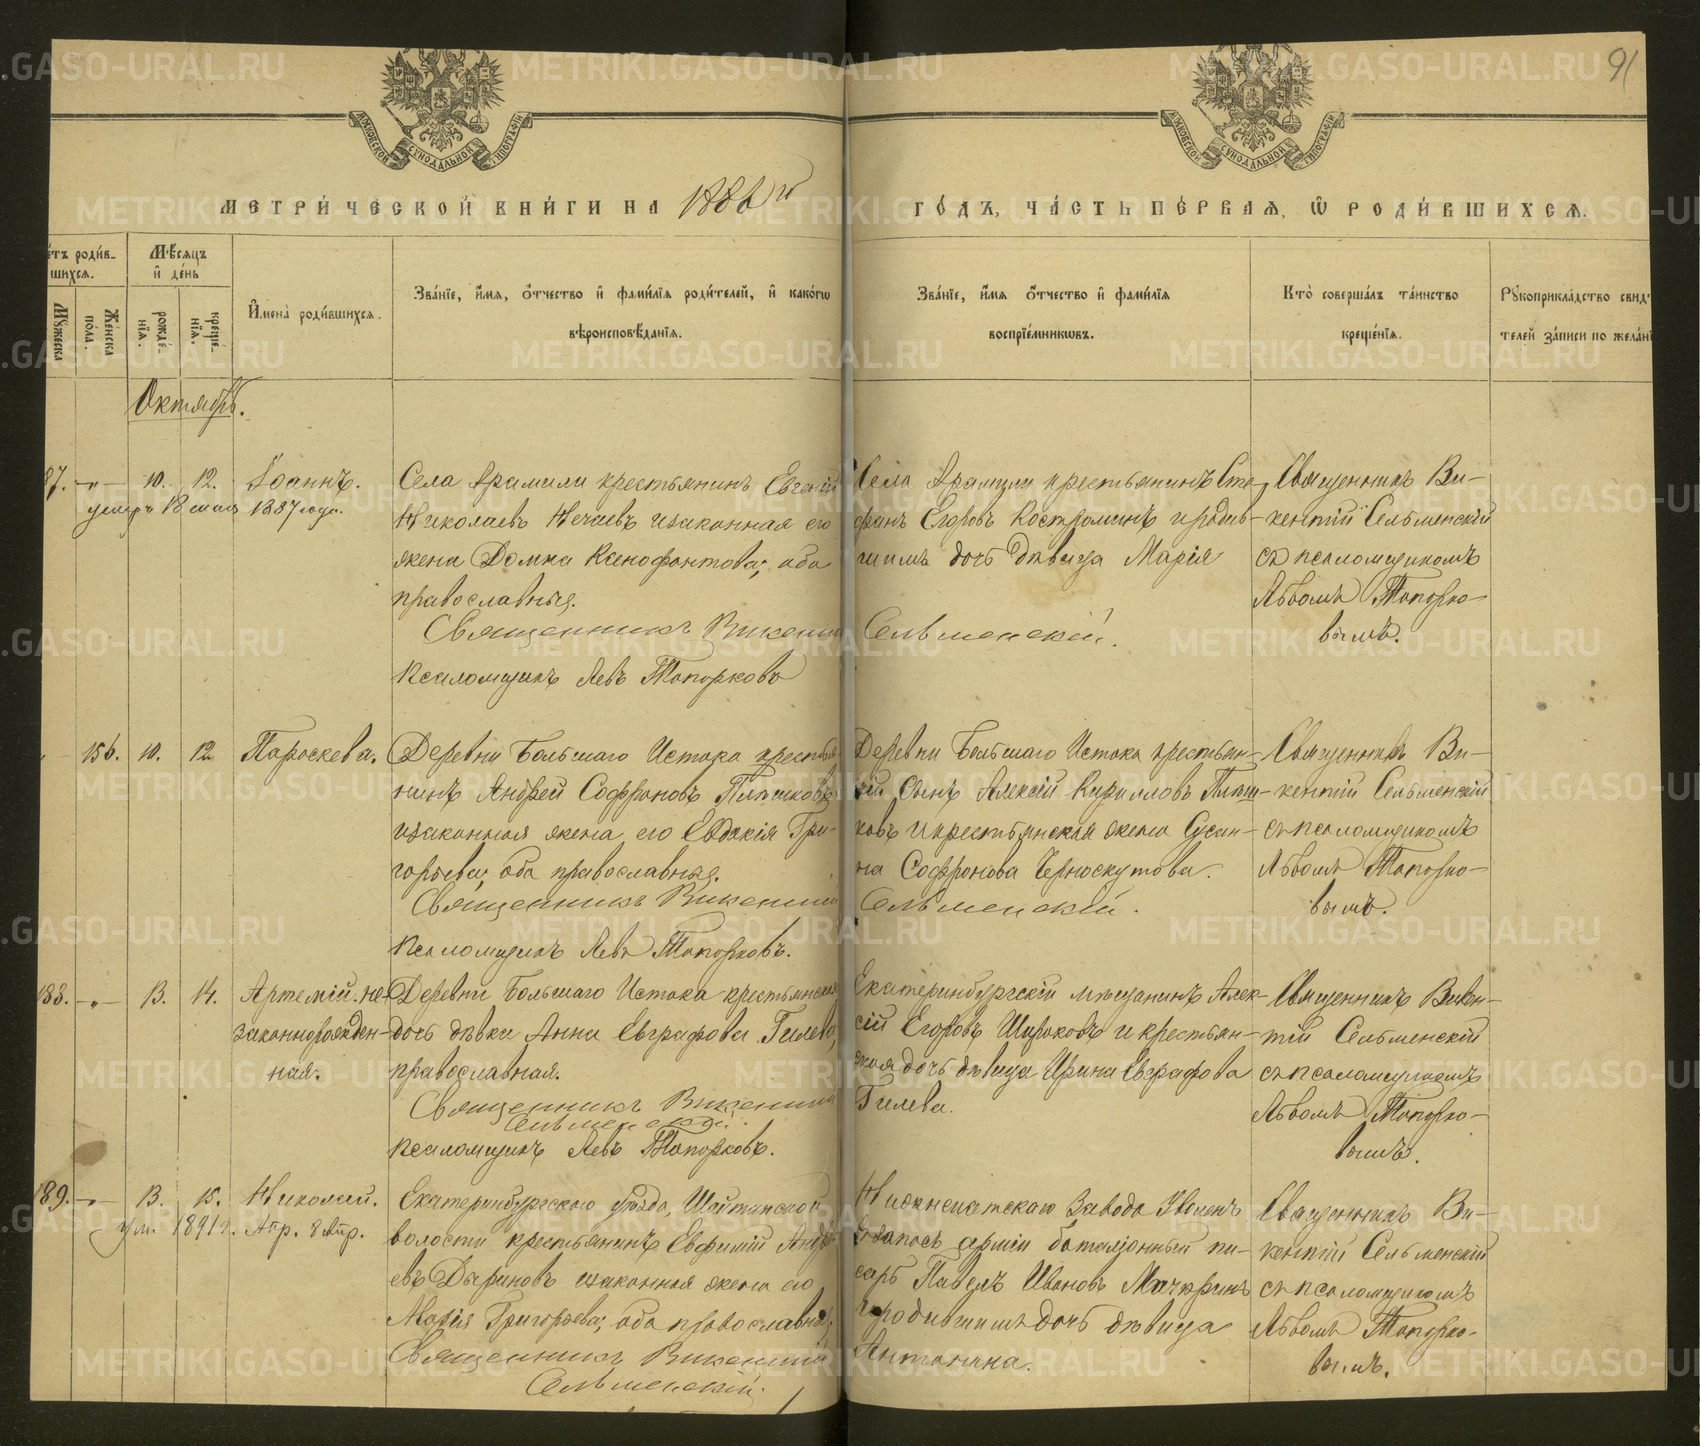 91
МОСКОВСКОЙ СѴНОДАЛЬНОЙ ТИПОГРАФІИ
МОСКОВСКОЙ СѴНОДАЛЬНОЙ ТИПОГРАФІИ
МЕТРИ́ЧЕСКОЙ КНИ́ГИ НА 1886 й
ГО́ДЪ, ЧА́СТЬ ПЕ́РВАѦ, Ѡ РОДИ́ВШИХСѦ.
етъ роди́в-
шихсѧ.
Мѣ́сѧцъ
и҆ де́нь
Мꙋжеска
Же́нска по́ла.
рожде́нїѧ.
креще́нїѧ.
И҆мена̀ роди́вшихсѧ.
Зва́нїе, и҆́мѧ, ѻ҆́тчество и҆ фами́лїѧ роди́телей, и҆ како́гѡ
вѣроисповѣ́данїѧ.
Зва́нїе, и҆́мѧ ѻ҆́тчество и҆ фами́лїѧ
воспрїе́мникѡвъ.
Кто̀ соверша́лъ та́инство
креще́нїѧ.
Рꙋкоприкла́дство свид
телей за́писи по жела́н
Октябрь.
87. - „ - 10. 12. Іоаннъ.
умеръ 18 мая 1887 года.
Села Арамили крестьянинъ Евгеній
Николаевъ Нечаевъ изаконная его
жена Домна Ксенофонтова; оба
православныя.
Священникъ Викентій Сельменскій.
Псаломщикъ Левъ Топорковъ
Села Арамили крестьянинъ Сте-
фанъ Егоровъ Костроминъ и родив-
шимъ дочь дѣвица Марія
Священникъ Ви-
кентій Сельменскій
съ псаломщикомъ
Львомъ Топорко-
вымъ.
156. 10. 12. Параскева.
Деревни Большаго Истока крестья-
нинъ Андрей Софроновъ Плѣшковъ
изаконная жена его Евдокія Гри-
горьева; оба православныя.
Священникъ Викентій Сельменскій.
Псаломщикъ Левъ Топорковъ.
Деревни Большаго Истока крестьян-
скій сынъ Алексій Кирилловъ Плѣш-
ковъ и крестьянская жена Сусан-
на Софронова Черноскутова.
Священникъ Ви-
кентій Сельменскій
съ псаломщикомъ
Львомъ Топорко-
вымъ.
188. - „ - 13. 14. Артемій. не-
законнорожден-
ная.
Деревни Большаго Истока крестьянская
дочь дѣвка Анна Евграфова Гилева,
православная.
Священникъ Викентій
Сельменскій.
Псаломщикъ Левъ Топорковъ.
Екатеринбургскій мѣщанинъ Алек-
сій Егоровъ Широковъ и крестьян-
ская дочь дѣвица Ирина Евграфова
Гилева.
Священникъ Викен-
тій Сельменскій
съ псаломщикомъ
Львомъ Топорко-
вымъ.
189. - „ - 13. 15. Николай.
ум. 1891 г. Апр. 8 Апр.
Екатеринбургскаго уѣзда, Шайтанской
волости крестьянинъ Евфимій Андре-
евъ Дыриновъ изаконная жена его
Марія Григорьева; оба православныя,
Священникъ Викентій
Сельменскій.
Нижнеисетскаго Завода Уволенъ
въ запасъ арміи баталіонный пи-
сарь Павелъ Ивановъ
и родившимъ дочь дѣвица
Антонина.
Священникъ Ви-
кентій Сельменскій
съ псаломщикомъ
Львомъ Топорко-
вымъ.
METRIKI.GASO-URAL.RU